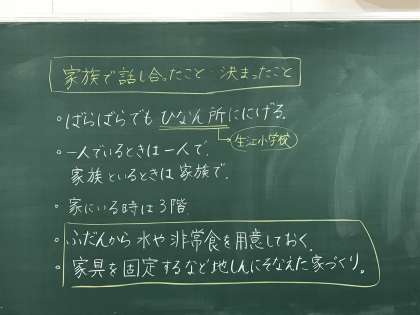 家族で話し合ったこと・決まったこと
。ばらばらでも ひなん所ににげる。
生江小学校
。一人でいるときは一人で。
家族といるときは家族で。
。家にいる時は3階
。ふだんから水や非常食を用意しておく。
。家具を固定するなど地しんにそなえた家づくり。